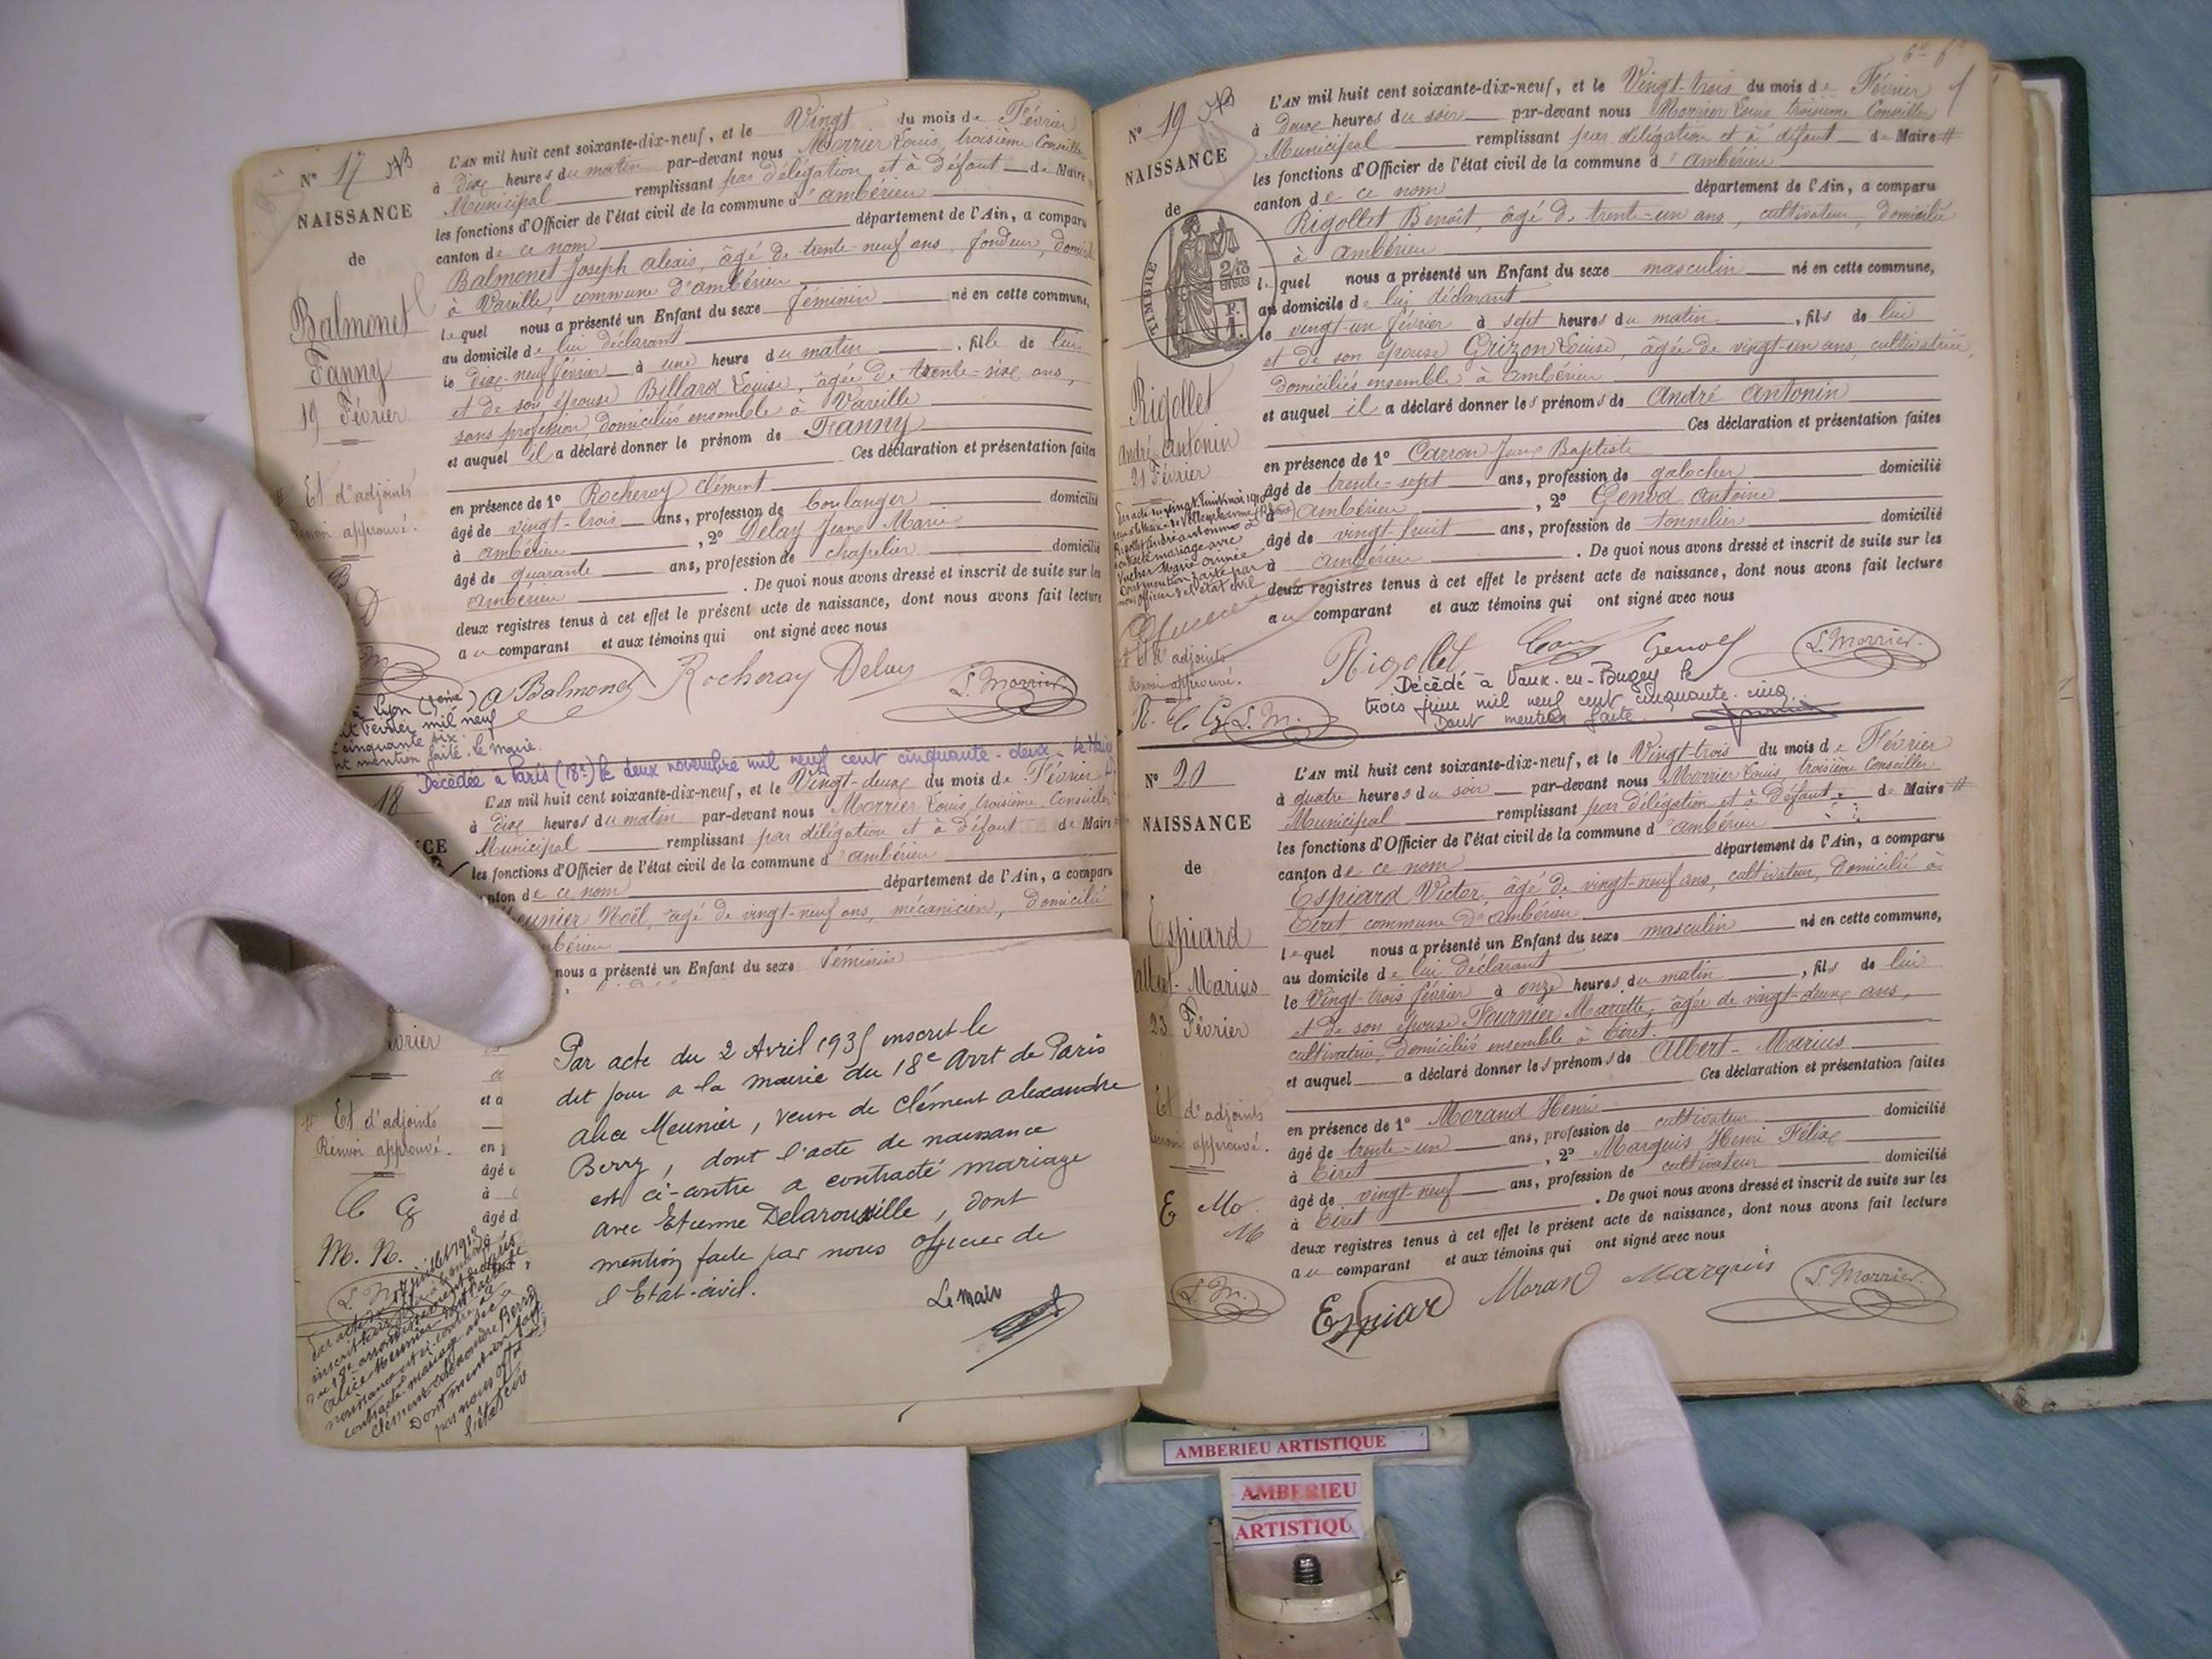 Nº 17
NAISSANCE
de
Balmonet
Fanny
19 Février
# Et d'adjoints
Renvoi approuvé.
L'AN mil huit cent soixante-dix-neuf, et le Vingt du mois de Février
à dix heures du matin par-devant nous Morrier Louis, troisième Conseiller
Municipal remplissant par délégation et à défaut de Maire
les fonctions d'Officier de l'état civil de la commune d'ambérieu
canton de ce nom département de l'Ain, a comparu
Balmonet Joseph alexis, âgé de trente-neuf ans, fondeur, domicilié
à Vareille, commune d'ambérieu
lequel nous a présenté un Enfant du sexe féminin né en cette commune,
au domicile de lui déclarant
le dix-neuf février à une heure du matin, fille de lui
et de son épouse Billard Louise, âgée de trente-six ans,
sans profession, domiciliés ensemble à Vareille
et auquel il a déclaré donner le prénom de Fanny
Ces déclaration et présentation faites
en présence de 1º Rocheray Clément
âgé de vingt-trois ans, profession de boulanger domicilié
à ambérieu, 2º Delay Jean Marie
âgé de quarante ans, profession de chapelier domicilié
ambérieu. De quoi nous avons dressé et inscrit de suite sur les
deux registres tenus à cet effet le présent acte de naissance, dont nous avons fait lecture
au comparant et aux témoins qui ont signé avec nous
a Balmonet Rocheray Delay L. Morrier
à Lyon
Février mil neuf
cinquante six.
mention faite. Le Maire.
Décédée à Paris (18e) le deux novembre mil neuf cent cinquante-deux. Le Maire
18
L'AN mil huit cent soixante-dix-neuf, et le Vingt-deux du mois de Février
à dix heures du matin par-devant nous Morrier Louis, troisième Conseiller
Municipal remplissant par délégation et à défaut de Maire
les fonctions d'Officier de l'état civil de la commune d'ambérieu
canton de ce nom département de l'Ain, a comparu
Meunier Noël, âgé de vingt-neuf ans, mécanicien, domicilié
ambérieu
nous a présenté un Enfant du sexe féminin
# Et d'adjoints
Renvoi approuvé.
M. N.
Par acte du 2 Avril 1935 inscrit le
dit jour a la mairie du 18e Arrt de Paris
Alice Meunier, veuve de Clément Alexandre
Berry, dont l'acte de naissance
est ci-contre a contracté mariage
avec Etienne Delarouxille, dont
mention faite par nous officier de
l'Etat-civil.
Le Maire
alice Meunier
contracté mariage avec
Clément alexandre Berry
Dont mention faite
par nous off
l'état civ
Nº 19
NAISSANCE
de
TIMBRE
Rigollet
André Antonin
21 Février
L'AN mil huit cent soixante-dix-neuf, et le Vingt-trois du mois de Février
à deux heures du soir par-devant nous Morrier Louis troisième Conseiller
Municipal remplissant par délégation et à défaut de Maire #
les fonctions d'Officier de l'état civil de la commune d'ambérieu
canton de ce nom département de l'Ain, a comparu
Rigollet Benoît, âgé de trente-un ans, cultivateur, domicilié
à ambérieu
lequel nous a présenté un Enfant du sexe masculin né en cette commune,
au domicile de lui déclarant
le vingt-un février à sept heures du matin, fils de lui
et de son épouse Grizon Louise, âgée de vingt-un ans, cultivatrice,
domiciliés ensemble à ambérieu
et auquel il a déclaré donner les prénoms de André antonin
Ces déclaration et présentation faites
en présence de 1º Carron Jean Baptiste
âgé de trente-sept ans, profession de galocher domicilié
à ambérieu, 2º Genod Antoine
âgé de vingt-huit ans, profession de tonnelier domicilié
à ambérieu. De quoi nous avons dressé et inscrit de suite sur les
deux registres tenus à cet effet le présent acte de naissance, dont nous avons fait lecture
au comparant et aux témoins qui ont signé avec nous
Rigollet André antonin a
contracté mariage avec
Vucher Marie
Dont mention faite par
nous officier de l'état civil
# Et d'adjoints
Renvoi approuvé.
Rigollet Genod L. Morrier
Décédé à Vaux-en-Bugey le
trois juin mil neuf cent cinquante-cinq
Dont mention faite.
L. M.
Nº 20
NAISSANCE
de
Espiard
Albert-Marius
23 Février
Et d'adjoints
Renvoi approuvé.
E Mo
M
L. M.
L'AN mil huit cent soixante-dix-neuf, et le Vingt-trois du mois de Février
à quatre heures du soir par-devant nous Morrier Louis, troisième Conseiller
Municipal remplissant par délégation et à défaut de Maire #
les fonctions d'Officier de l'état civil de la commune d'ambérieu
canton de ce nom département de l'Ain, a comparu
Espiard Victor, âgé de vingt-neuf ans, cultivateur, domicilié à
Tiret, commune d'ambérieu
lequel nous a présenté un Enfant du sexe masculin né en cette commune,
au domicile de lui déclarant
le Vingt-trois février à onze heures du matin, fils de lui
et de son épouse Fournier Mariette, âgée de vingt-deux ans,
cultivatrice, domiciliés ensemble à Tiret.
et auquel a déclaré donner les prénoms de Albert-Marius
Ces déclaration et présentation faites
en présence de 1º Morand Henri
âgé de trente-un ans, profession de cultivateur domicilié
à Tiret, 2º Marquis Henri Félix
âgé de vingt-neuf ans, profession de cultivateur domicilié
à Tiret. De quoi nous avons dressé et inscrit de suite sur les
deux registres tenus à cet effet le présent acte de naissance, dont nous avons fait lecture
au comparant et aux témoins qui ont signé avec nous
Espiar Moran Marquis L. Morrier
AMBERIEU ARTISTIQUE
AMBERIEU
ARTISTIQU